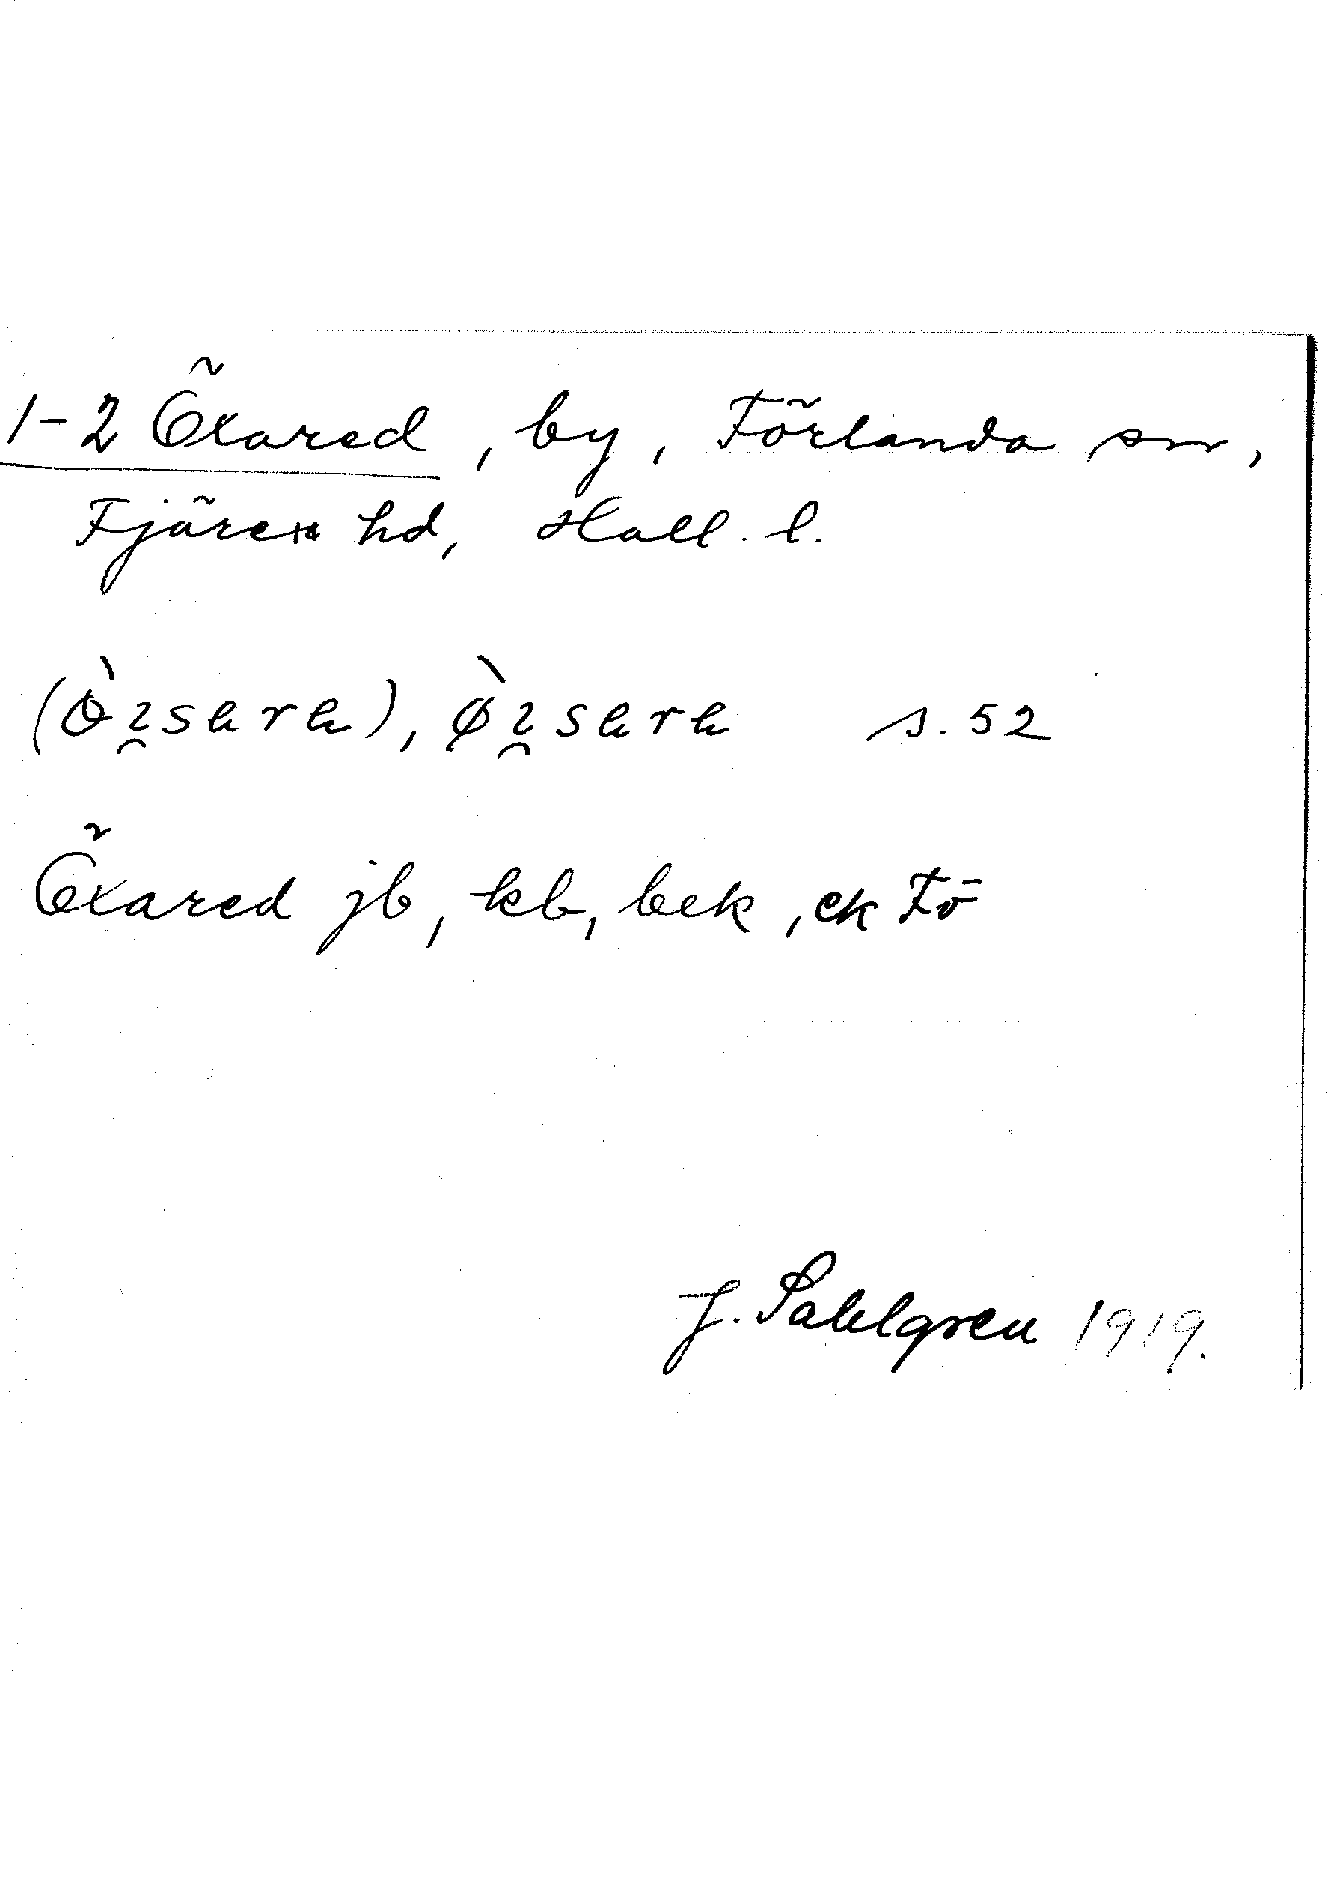 1-2 Öxared, by, Förlanda sn,
Fjäre hd, Hall. l.
s. 52
Öxared jb, kb, bek, ek Fö
J. Sahlgren 1919.